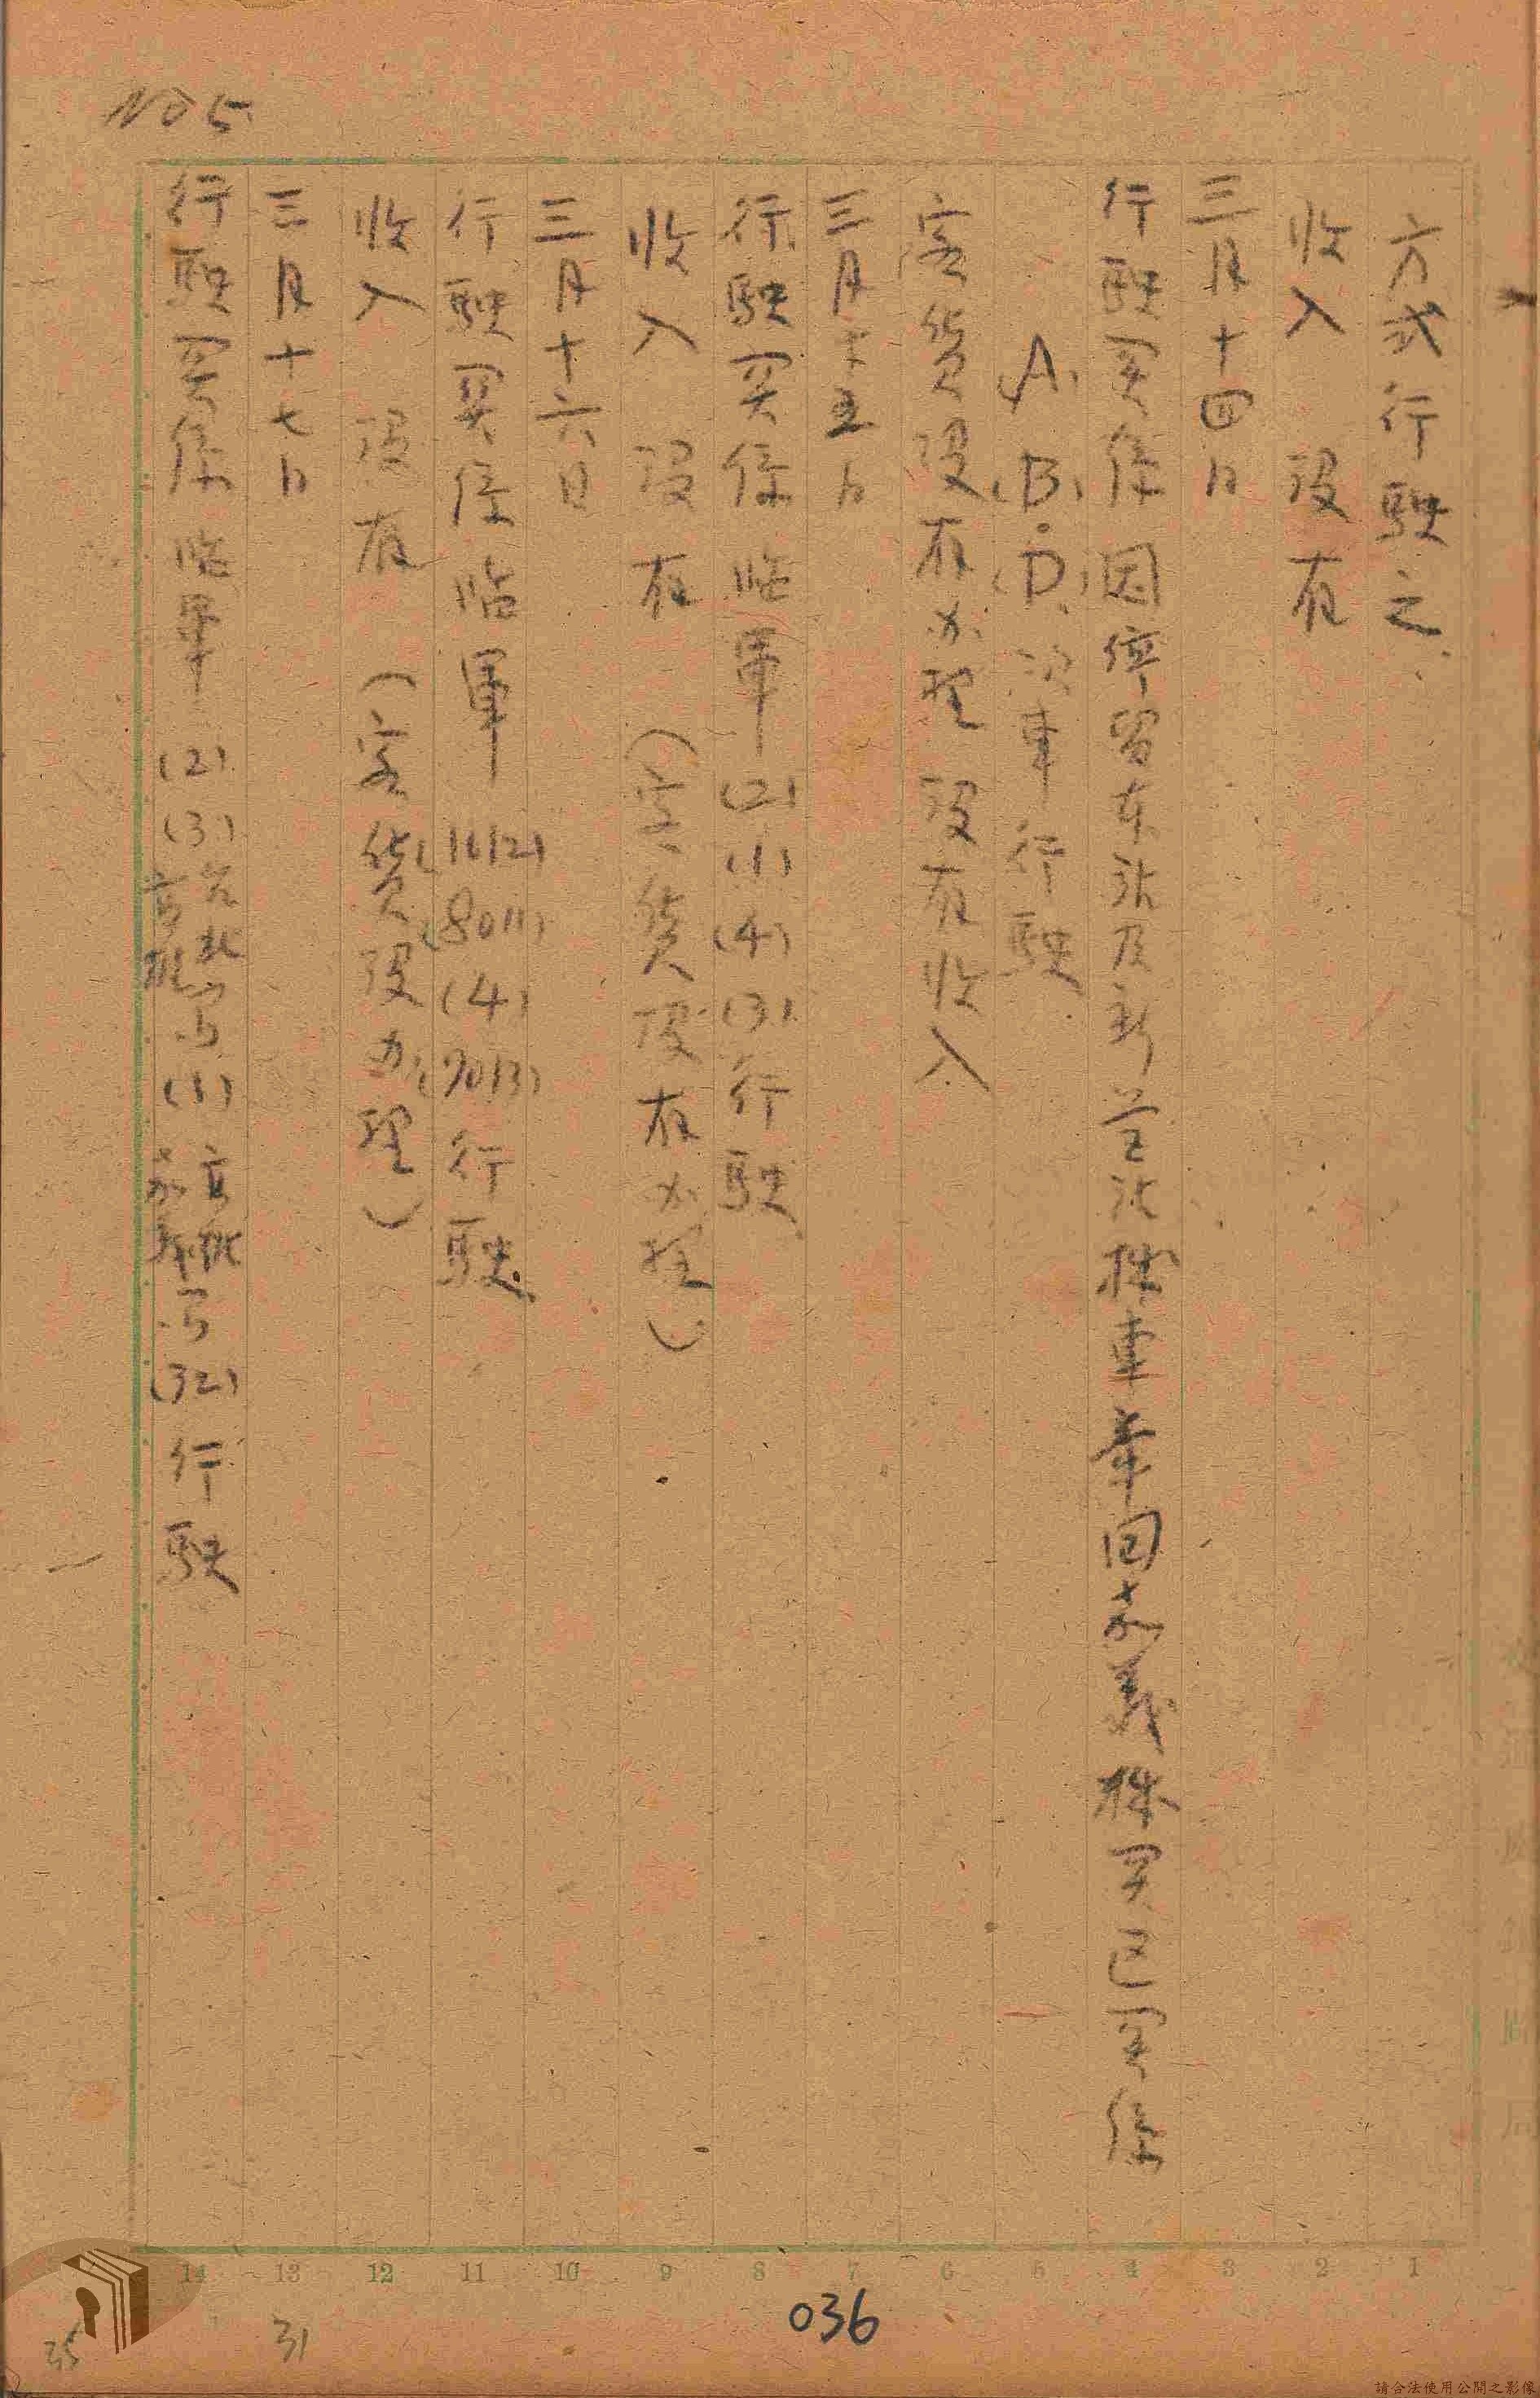 NO5.
方式行駛之.
收入 沒有
三月十四日
行駛实係 因停留东站及新営站機車牽回嘉義株实已实係
(A)(B).(D)次車行駛
客貨沒有办理 沒有收入
三月十五日
行駛实係 临軍(2)(1)(4)(3)行駛
收入 沒有 (客貨沒有办理)
三月十六日
行駛实係 临軍 (1612)(8011)(4)(7013)行駛.
收入 沒有 (客貨沒办理)
三月十七日
行駛实係 临軍(2)(3) (1) (32)行駛
1 2 3 4 5 6 7 8 9 10 11 12 13 14
036
31
35
請合法使用公開之影像